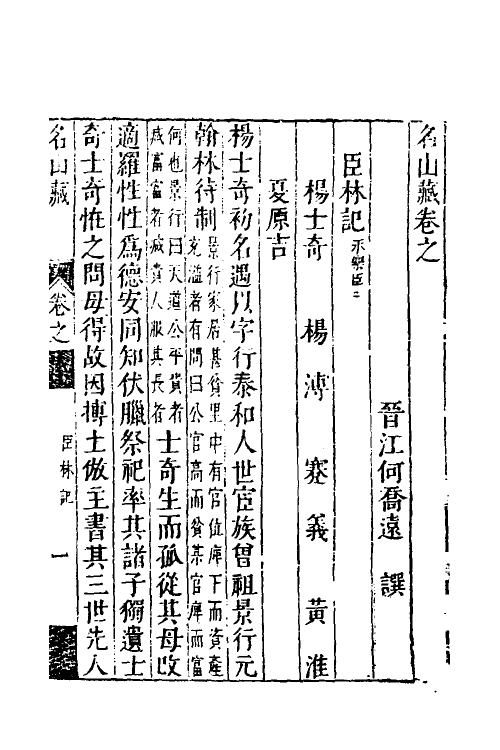 名山藏卷之
晉江何喬遠 譔
臣林記 永樂臣二
楊士奇 楊溥 蹇義 黃淮
夏原吉
楊士奇初名遇以字行泰和人世宦族曾祖景行元
翰林待制 景行家居甚貧里中有官位庳下而資產
充溢者有問曰公官高而貧某官庳而富
何也景行曰天道公平貧者
臧富富者臧貴人服其長者 士奇生而孤從其母改
適羅性性爲德安同知伏臘祭祀率其諸子獨遺士
奇士奇恠之問母得故因摶土倣主書其三世先人
名山藏 卷之 臣林記 一